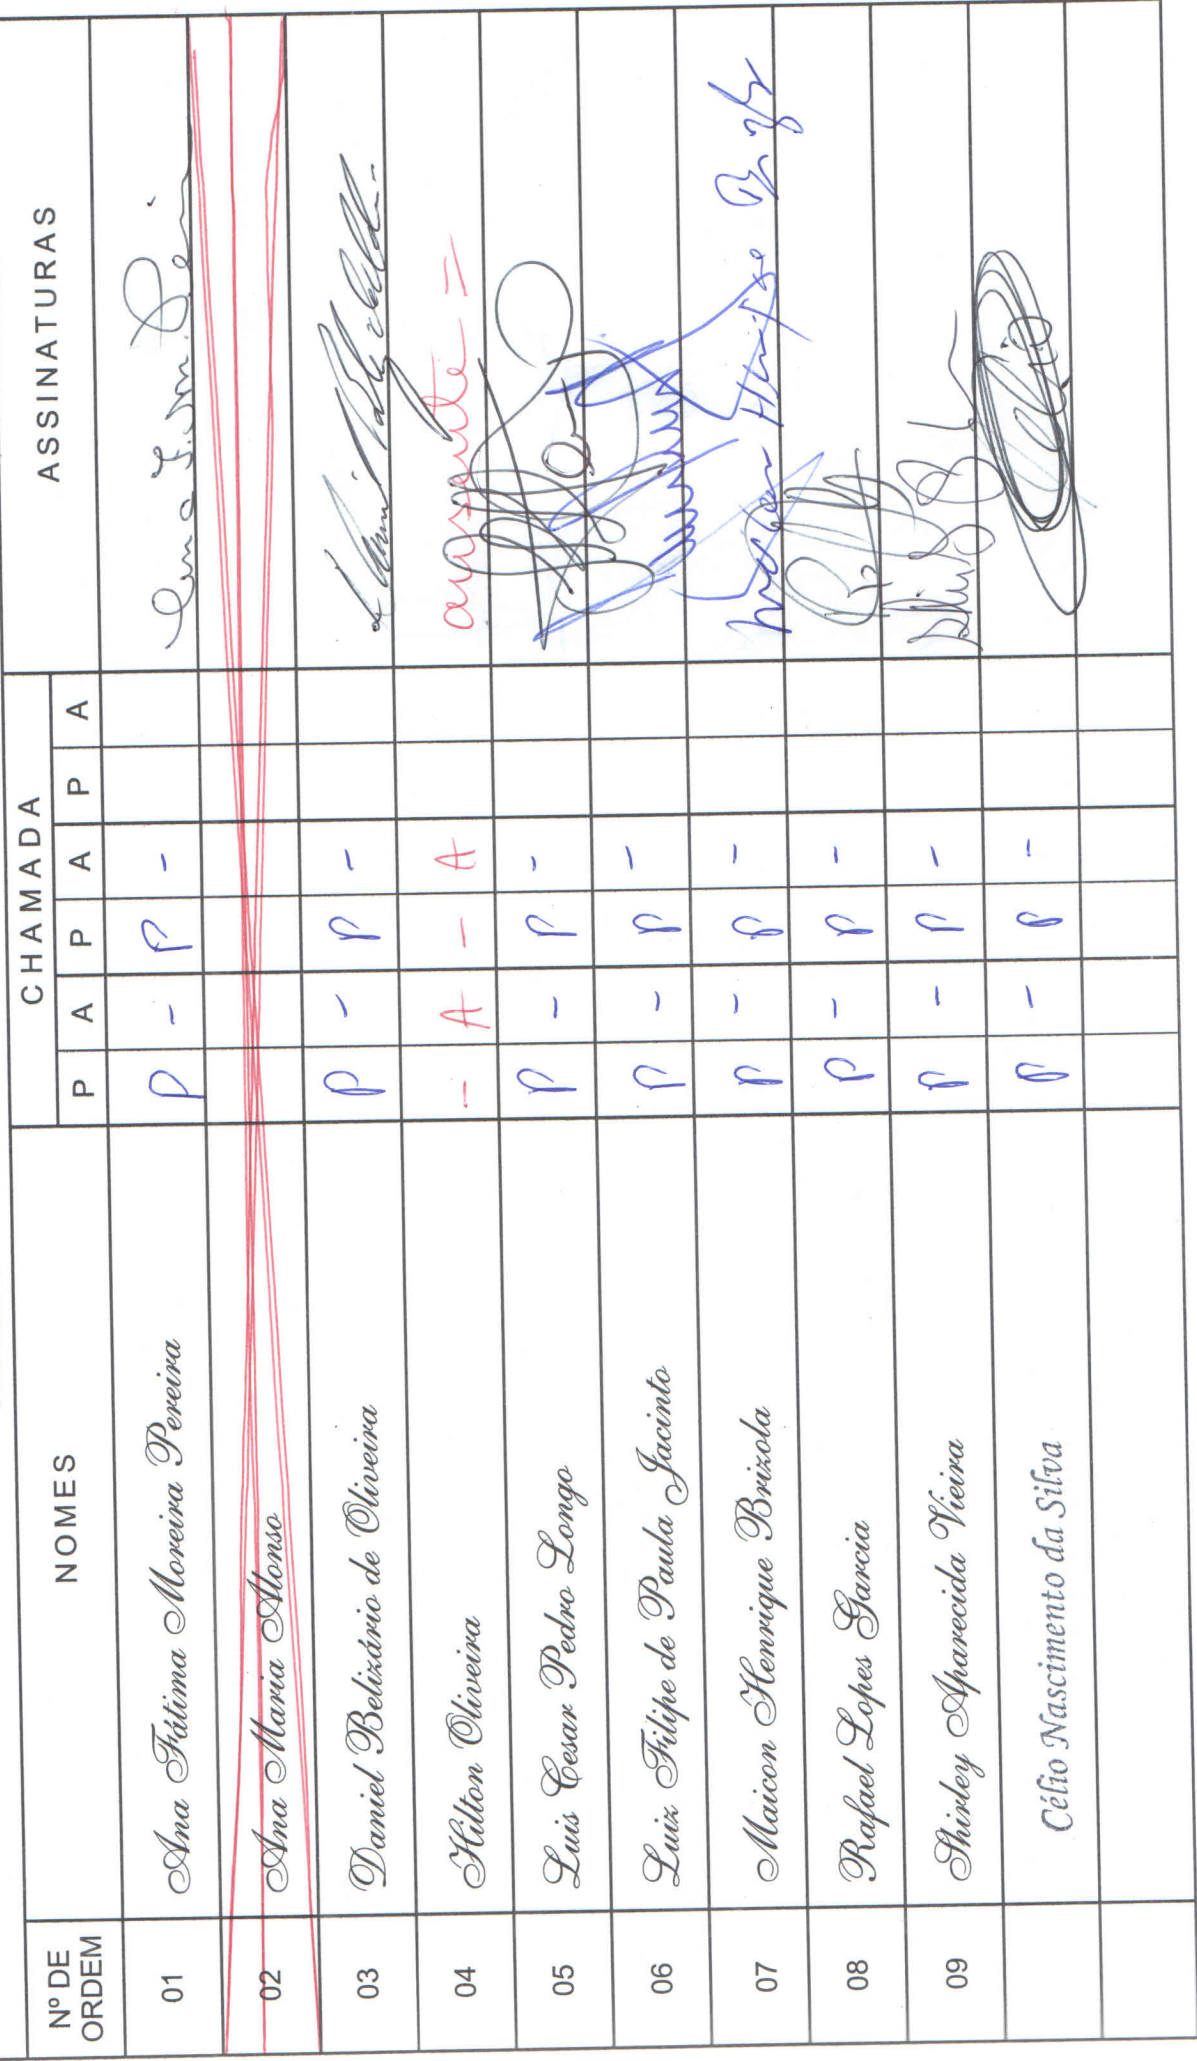 Nº DE ORDEM NOMES CHAMADA ASSINATURAS
P A P A P A
01 Ana Fátima Moreira Pereira P - P -
02 Ana Maria Alonso
03 Daniel Belizário de Oliveira P - P -
04 Hilton Oliveira - A - A ausente =
05 Luis Cesar Pedro Longo P - P -
06 Luiz Filipe de Paula Jacinto P - P -
07 Maicon Henrique Brizola P - P -
08 Rafael Lopes Garcia P - P -
09 Shirley Aparecida Vieira P - P -
Célio Nascimento da Silva P - P -